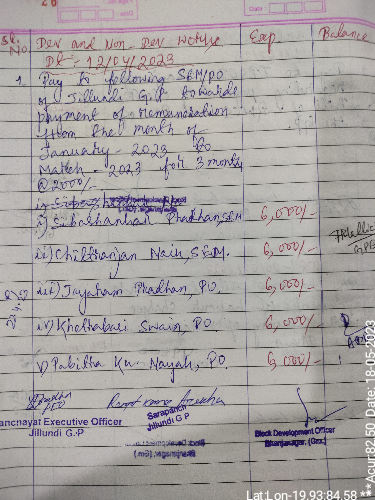 Sl. No
Dev and Non-Dev Works
Exp
Balance
Dt - 12/04/2023
1. Pay to following SEM/PO
of Jillundi G.P towards
payment of remuneration
from the month of
January - 2023 to
March - 2023 for 3 month
@ 2000/-
i) Sibashankar Pradhan, SEM 6,000/-
ii) Chittaranjan Naik, SEM. 6,000/-
iii) Jayaram Pradhan, PO 6,000/-
iv) Khetrabasi Swain, PO 6,000/-
v) Pabitra Ku Nayak, PO. 6,000/-
Panchayat Executive Officer
Jillundi G.P
Sarapanch
Jillundi G P
Block Development Officer
Bhanjanagar, (Gm.)
Lat:Lon-19.93:84.58 **Acur:82.50 Date:18-05-2023